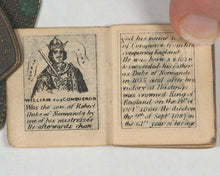 WILLIAM THE CONQUEROR
Was the son of Robert
Duke of Normandy by
one of his mistresses
He afterwards chan
ged his name
of Conqueror from his
conquering England
He was born
to succeeded his father
as Duke of Normandy
in 1035 and after his
victory at Hastings
was crowned King of
England on the
Oct 1066 He died on
the 9th of Sept 1087 in
the year of his age